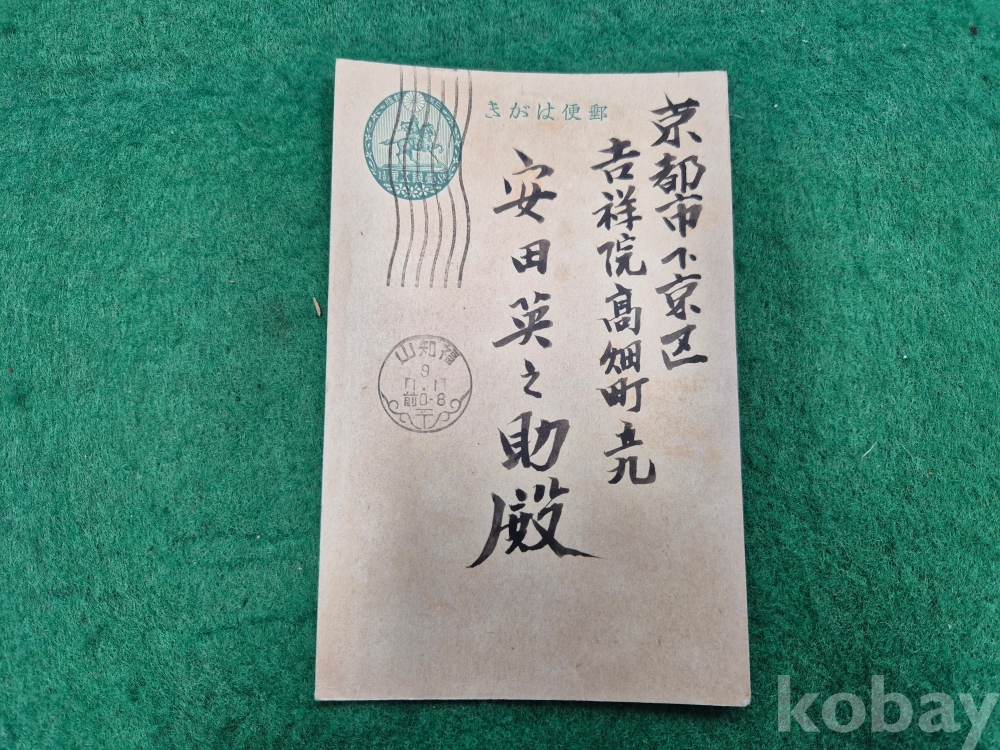 京都市下京区
吉祥院高畑町五九
安田英之助殿
きがは便郵
山知福
9
前0-8
kobay